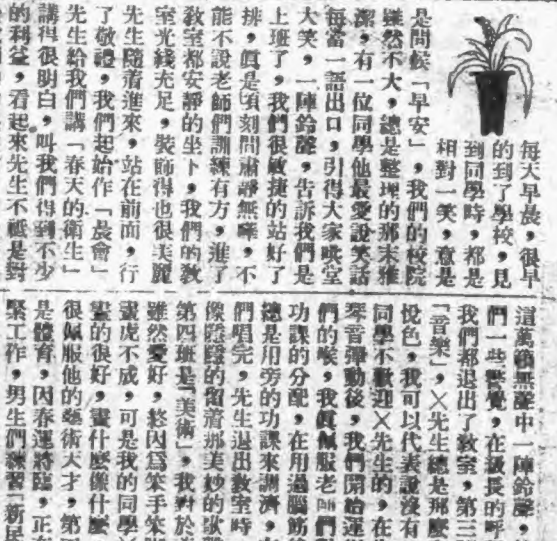 每天早晨，很早
的到了學校，見
到同學時，都是
相對一笑，意是
是問候「早安」，我們的校院
雖然不大，總是整理的那末雅
潔，有一位同學他最愛說笑話
每當一語出口，引得大家哄堂
大笑，一陣鈴聲，告訴我們是
上班了，我們很敏捷的站好了
排，眞是頃刻間肅靜無嘩，不
能不說老師們訓練有方，進了
敎室都安靜的坐下，我們的敎
室光綫充足，裝飾得也很美麗
先生隨着進來，站在前面，行
了敬禮，我們起始作「晨會」
先生給我們講「春天的衛生」
講得很明白，叫我們得到不少
的利益，看起來先生不祇是對
這萬籟無聲中一陣鈴聲，
們一些警覺，在級長的呼
我們都退出了敎室，第三
「音樂」，×先生總是那麼
悅色，我可以代表說沒有
同學不歡迎×先生的，在
琴音彈動後，我們開始運
們的喉，我眞佩服老師們
功課的分配，在用過腦筋
總是用旁的功課來調濟，
們唱完，先生退出敎室時
像隱隱的留着那美妙的歌聲
第四班是「美術」，我對於
雖然愛好，終因爲笨手笨
畫虎不成，可是我的同學
畫的很好，畫什麼像什麼
很佩服他的藝術天才，第
是體育，因春運將臨，正在
緊工作，男生們練習「新民